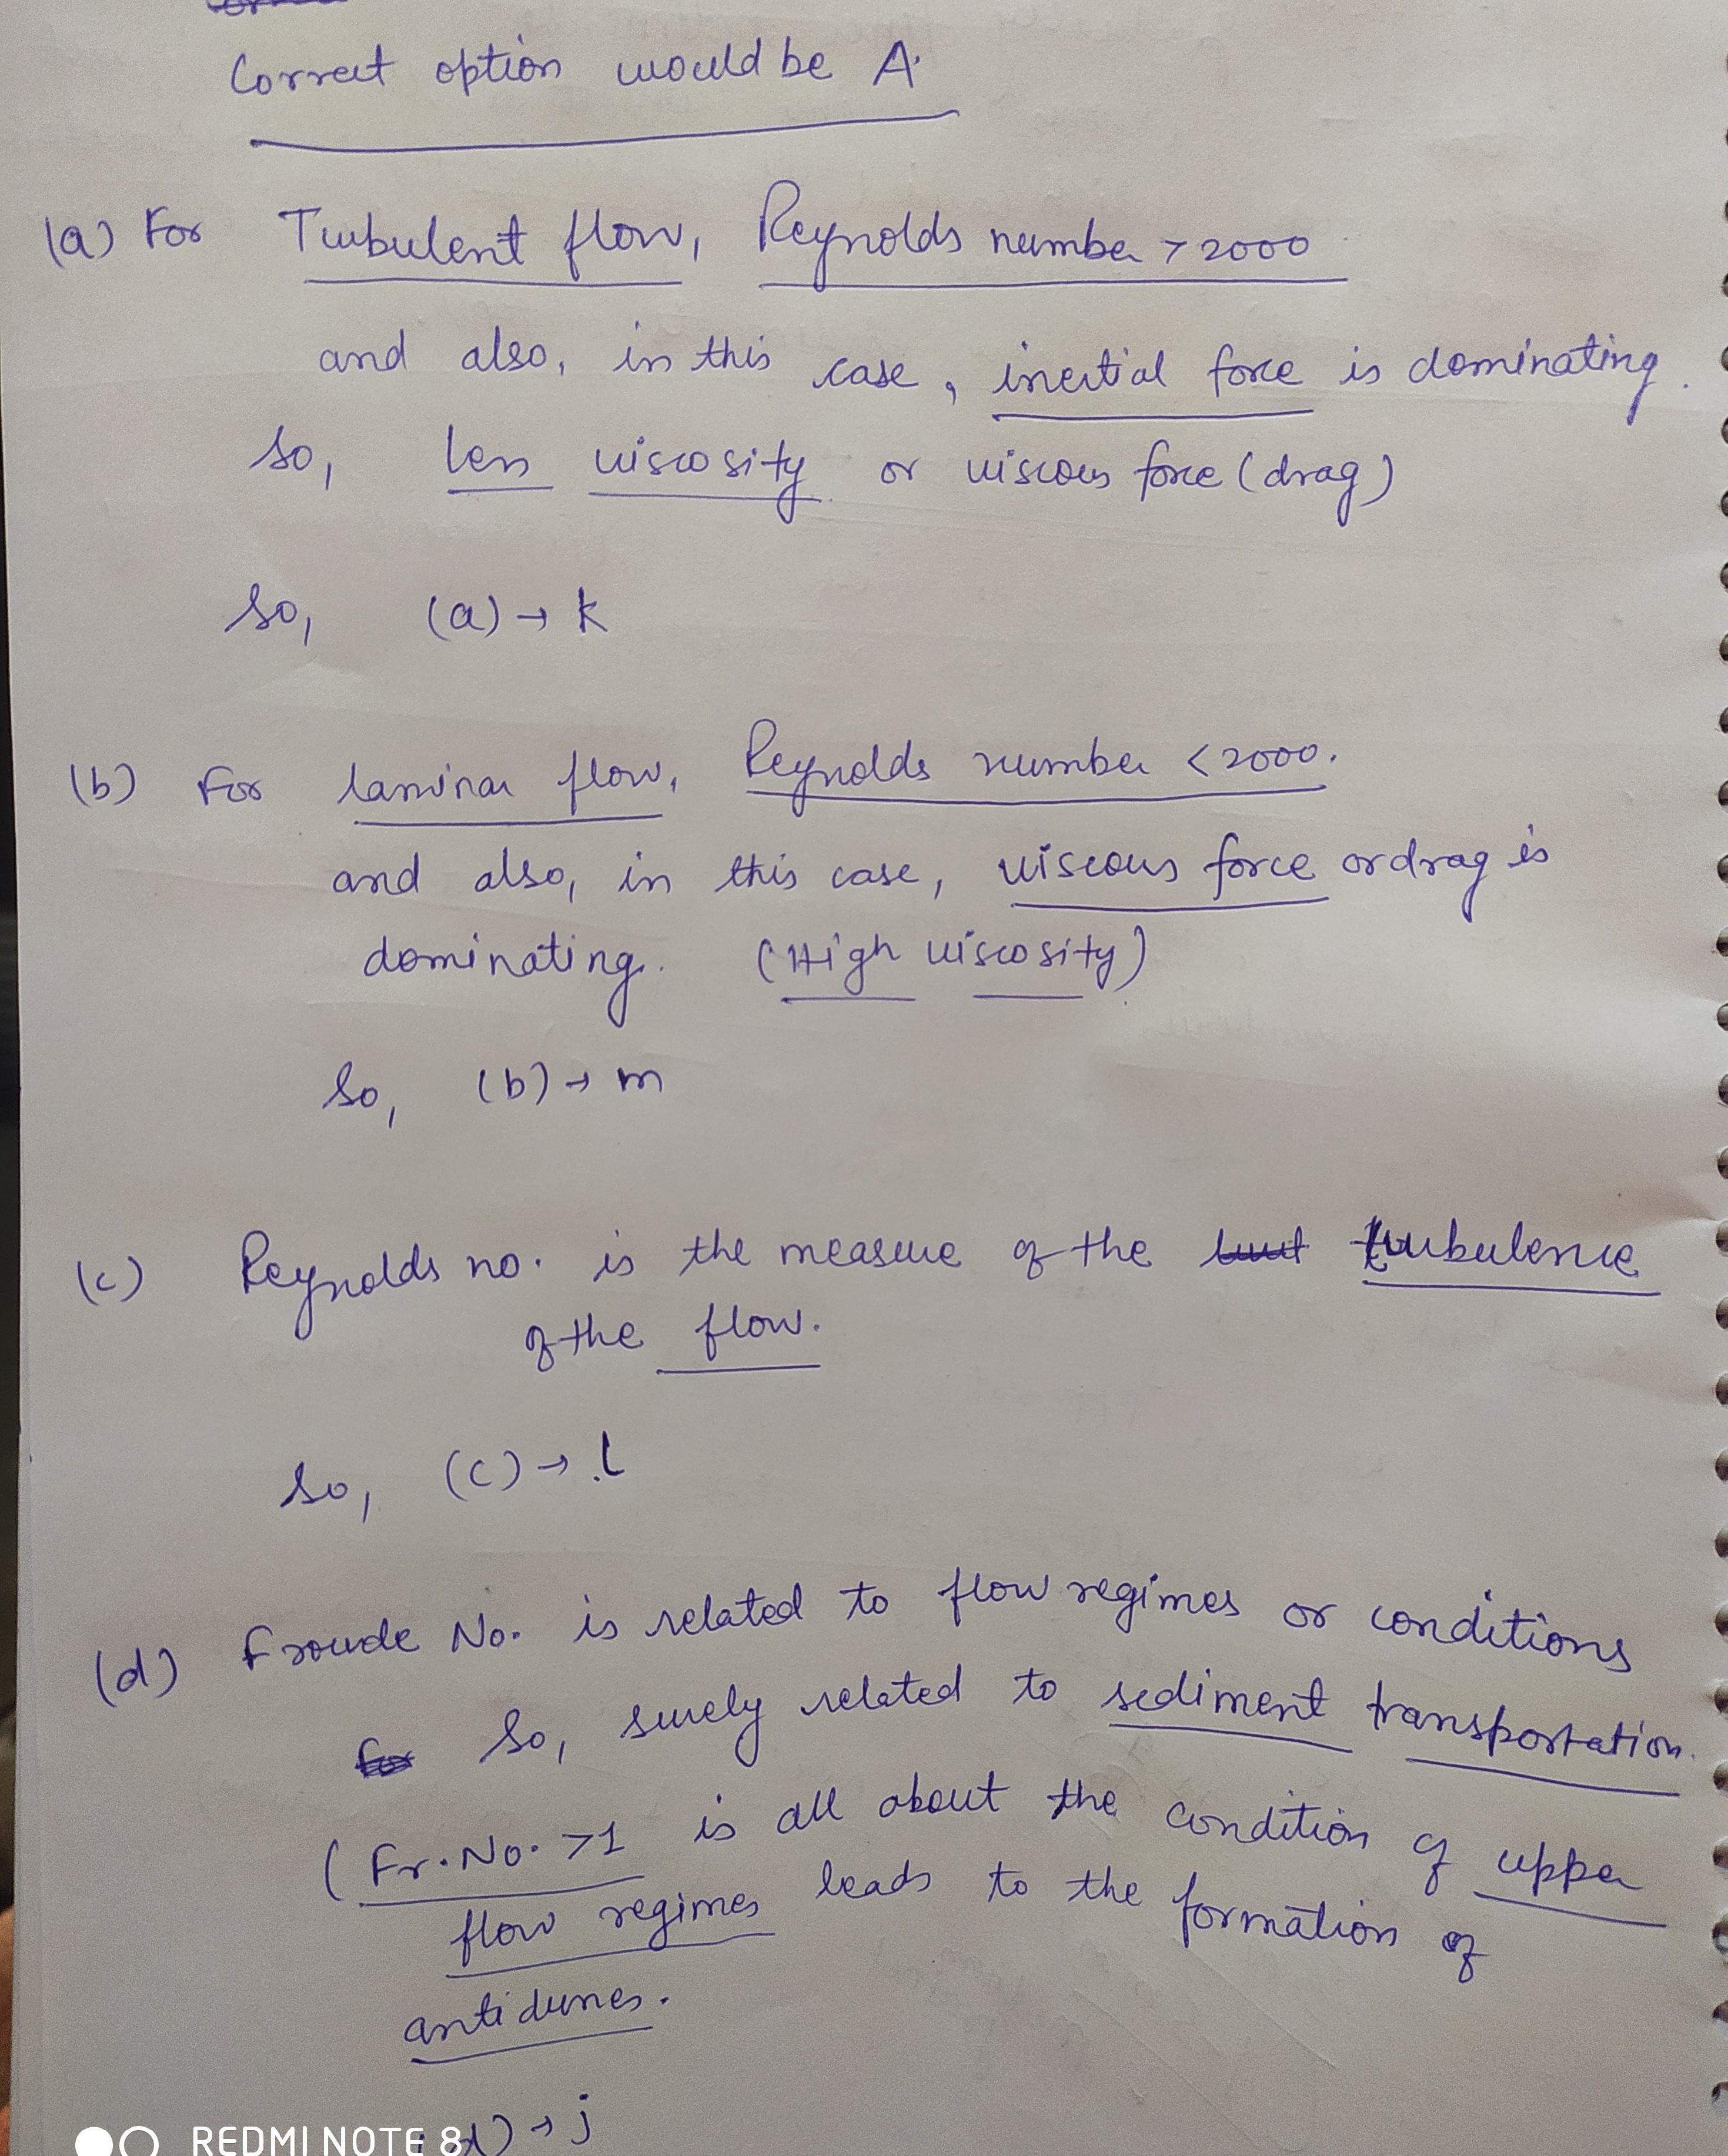 Correct option would be A.
(a) For Turbulent flow, Reynolds number > 2000
and also, in this case, inertial force is dominating.
So, less viscosity or viscous force (drag)
So, (a) → k
(b) For laminar flow, Reynolds number < 2000.
and also, in this case, viscous force or drag is
dominating. (High viscosity)
So, (b) → m
(c) Reynolds no. is the measure of the turbulence
of the flow.
So, (c) → l
(d) Froude No. is related to flow regimes or conditions
So, surely related to sediment transportation.
(Fr. No. > 1 is all about the condition of upper
flow regimes leads to the formation of
antidunes.
d) → j
REDMI NOTE 8